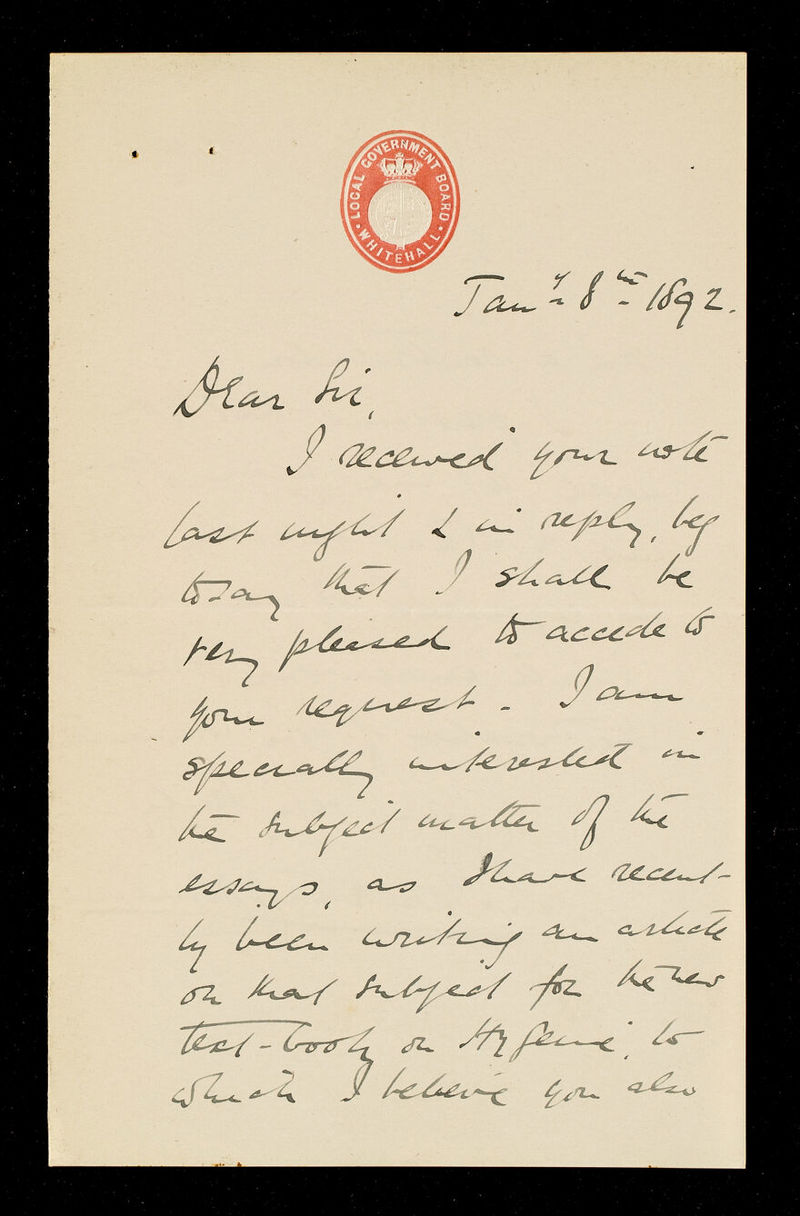 LOCAL GOVERNMENT BOARD
WHITEHALL
Jany 8th 1892.
Dear Sir,
I received your note
last night & in reply, beg
to say that I shall be
very pleased to accede to
your request. I am
specially interested in
the subject matter of the
essays, as I have recent-
ly been writing an article
on that subject for the new
text-book on Hygiene, to
which I believe you also